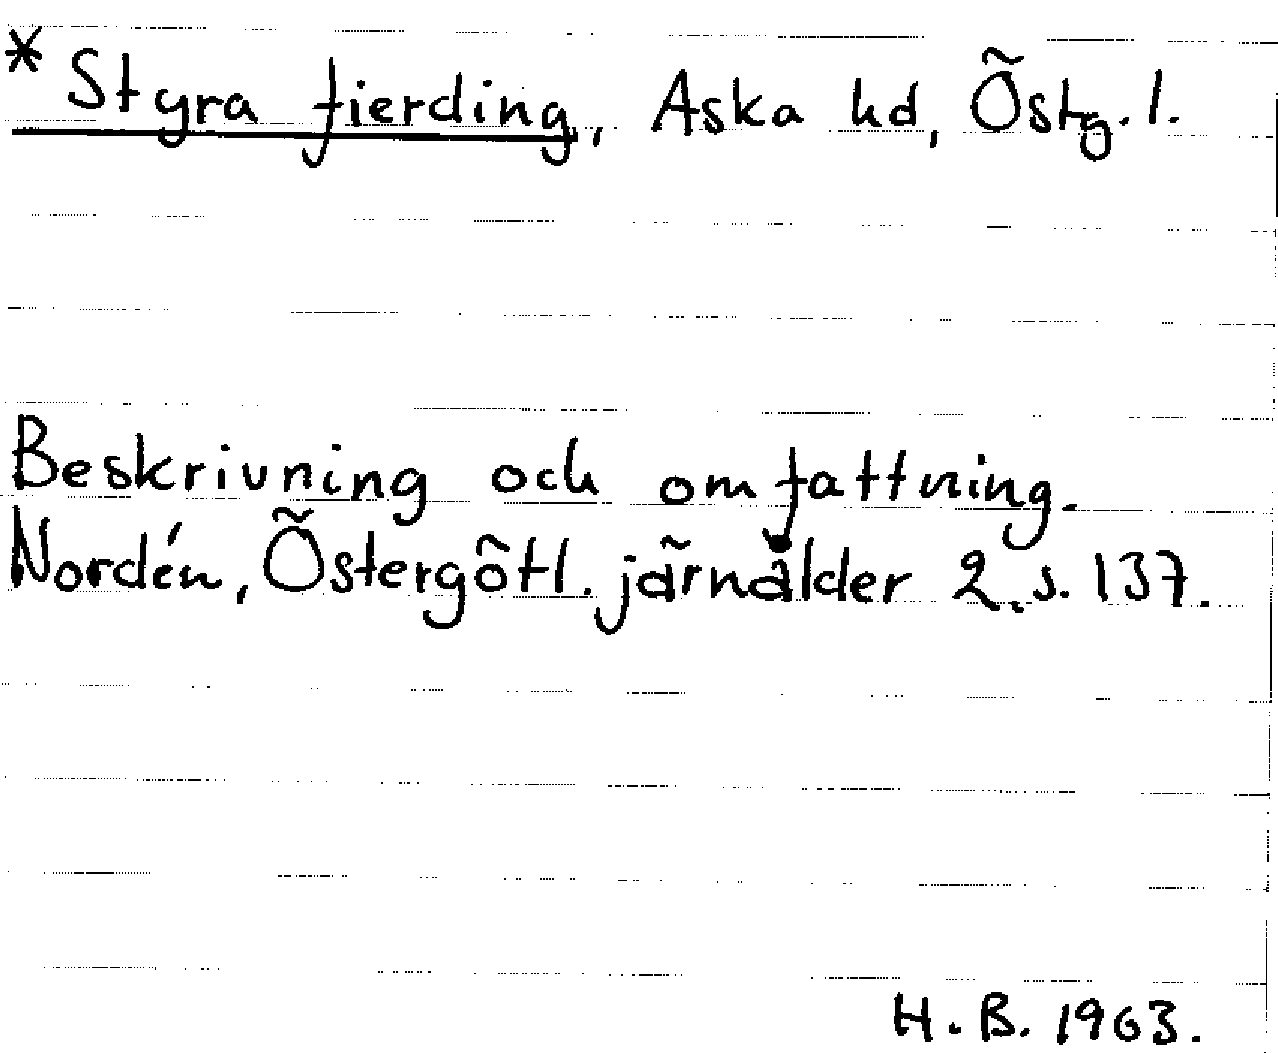 * Styra fierding, Aska hd, Östg. l.
Beskrivning och omfattning.
Nordén, Östergötl. järnålder 2, s. 137.
H. B. 1963.